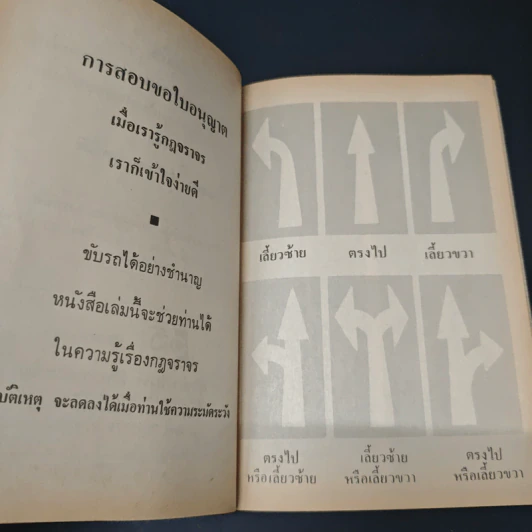 การสอบขอใบอนุญาต
เมื่อเรารู้กฎจราจร
เราก็เข้าใจง่ายดี
ขับรถได้อย่างชำนาญ
หนังสือเล่มนี้จะช่วยท่านได้
ในความรู้เรื่องกฎจราจร
บัติเหตุ จะลดลงได้เมื่อท่านใช้ความระมัดระวัง
เลี้ยวซ้าย ตรงไป เลี้ยวขวา
ตรงไป
หรือเลี้ยวซ้าย
เลี้ยวซ้าย
หรือเลี้ยวขวา
ตรงไป
หรือเลี้ยวขวา